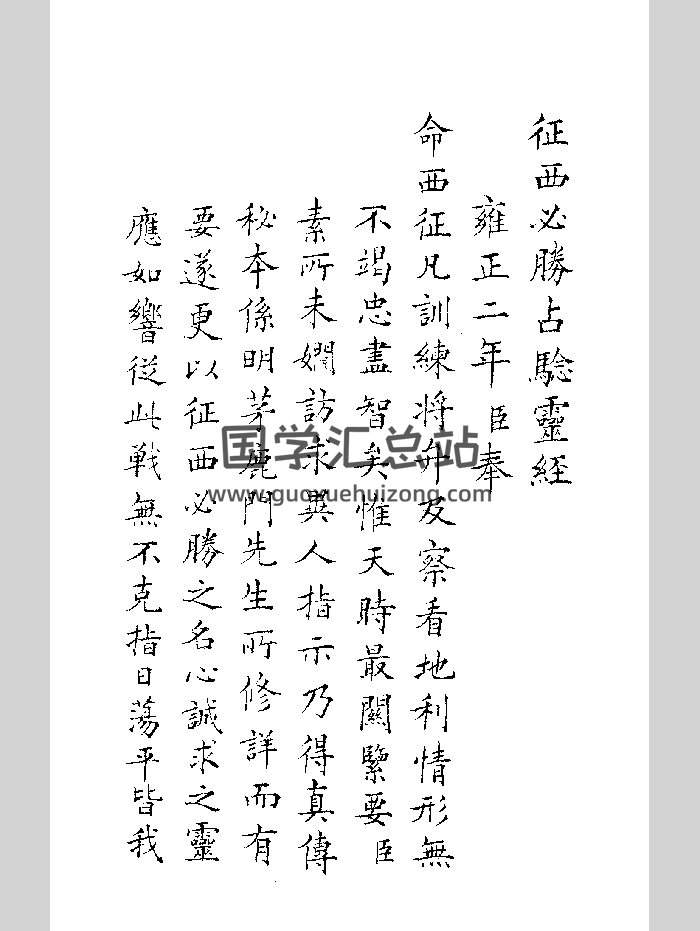 征西必勝占驗靈經
雍正二年臣奉
命西征凡訓練將弁及察看地利情形無
不竭忠盡智矣惟天時最關緊要臣
素所未嫺訪求異人指示乃得真傳
秘本係明茅鹿門先生所修詳而有
要遂更以征西必勝之名心誠求之靈
應如響從此戰無不克指日蕩平皆我
国学汇总站
www.guoxuehuizong.com